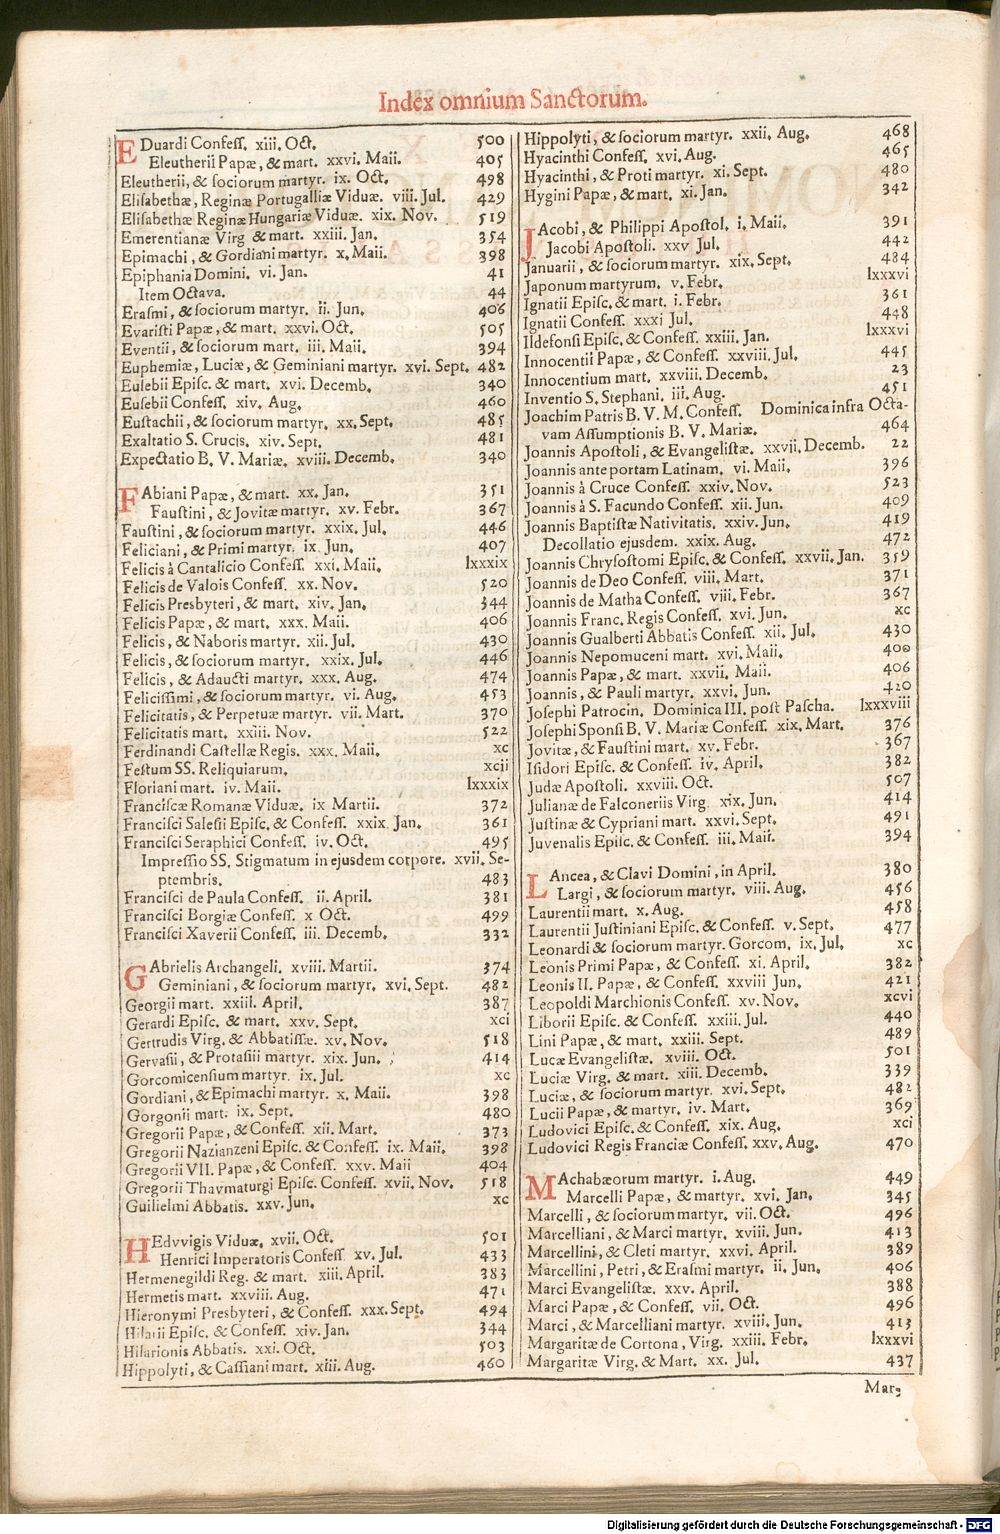 Index omnium Sanctorum.
EDuardi Confeſſ. xiii. Oct. 500
Eleutherii Papæ, & mart. xxvi. Maii. 405
Eleutherii, & ſociorum martyr. ix. Oct. 498
Eliſabethæ, Reginæ Portugalliæ Viduæ. viii. Jul. 429
Eliſabethæ Reginæ Hungariæ Viduæ. xix. Nov. 519
Emerentianæ Virg & mart. xxiii. Jan. 354
Epimachi, & Gordiani martyr. x. Maii. 398
Epiphania Domini. vi. Jan. 41
Item Octava. 44
Eraſmi, & ſociorum martyr. ii. Jun. 406
Evariſti Papæ, & mart. xxvi. Oct. 505
Eventii, & ſociorum mart. iii. Maii. 394
Euphemiæ, Luciæ, & Geminiani martyr. xvi. Sept. 482
Euſebii Epiſc. & mart. xvi. Decemb. 340
Euſebii Confeſſ. xiv. Aug. 460
Euſtachii, & ſociorum martyr. xx. Sept. 485
Exaltatio S. Crucis. xiv. Sept. 481
Expectatio B. V. Mariæ. xviii. Decemb. 340
FAbiani Papæ, & mart. xx. Jan. 351
Fauſtini, & Jovitæ martyr. xv. Febr. 367
Fauſtini, & ſociorum martyr. xxix. Jul. 446
Feliciani, & Primi martyr. ix. Jun. 407
Felicis à Cantalicio Confeſſ. xxi. Maii. lxxxix
Felicis de Valois Confeſſ. xx. Nov. 520
Felicis Presbyteri, & mart. xiv. Jan. 344
Felicis Papæ, & mart. xxx. Maii. 406
Felicis, & Naboris martyr. xii. Jul. 430
Felicis, & ſociorum martyr. xxix. Jul. 446
Felicis, & Adaucti martyr. xxx. Aug. 474
Feliciſſimi, & ſociorum martyr. vi. Aug. 453
Felicitatis, & Perpetuæ martyr. vii. Mart. 370
Felicitatis mart. xxiii. Nov. 522
Ferdinandi Caſtellæ Regis. xxx. Maii. xc
Feſtum SS. Reliquiarum. xcii
Floriani mart. iv. Maii. lxxxix
Franciſcæ Romanæ Viduæ. ix Martii. 372
Franciſci Saleſii Epiſc. & Confeſſ. xxix. Jan. 361
Franciſci Seraphici Confeſſ. iv. Oct. 495
Impreſſio SS. Stigmatum in ejusdem corpore. xvii. Se-
ptembris. 483
Franciſci de Paula Confeſſ. ii. April. 381
Franciſci Borgiæ Confeſſ. x Oct. 499
Franciſci Xaverii Confeſſ. iii. Decemb. 332
GAbrielis Archangeli. xviii. Martii. 374
Geminiani, & ſociorum martyr. xvi. Sept. 482
Georgii mart. xxiii. April. 387
Gerardi Epiſc. & mart. xxv. Sept. xci
Gertrudis Virg. & Abbatiſſæ. xv. Nov. 518
Gervaſii, & Protaſiii martyr. xix. Jun. 414
Gorcomicenſium martyr. ix. Jul. xc
Gordiani, & Epimachi martyr. x. Maii. 398
Gorgonii mart. ix. Sept. 480
Gregorii Papæ, & Confeſſ. xii. Mart. 373
Gregorii Nazianzeni Epiſc. & Confeſſ. ix. Maii. 398
Gregorii VII. Papæ, & Confeſſ. xxv. Maii 404
Gregorii Thavmaturgi Epiſc. Confeſſ. xvii. Nov. 518
Guilielmi Abbatis. xxv. Jun. xc
HEdvvigis Viduæ. xvii. Oct. 501
Henrici Imperatoris Confeſſ. xv. Jul. 433
Hermenegildi Reg. & mart. xiii. April. 383
Hermetis mart. xxviii. Aug. 471
Hieronymi Presbyteri, & Confeſſ. xxx. Sept. 494
Hilarii Epiſc. & Confeſſ. xiv. Jan. 344
Hilarionis Abbatis. xxi. Oct. 503
Hippolyti, & Caſſiani mart. xiii. Aug. 460
Hippolyti, & ſociorum martyr. xxii. Aug. 468
Hyacinthi Confeſſ. xvi. Aug. 465
Hyacinthi, & Proti martyr. xi. Sept. 480
Hygini Papæ, & mart. xi. Jan. 342
JAcobi, & Philippi Apoſtol. i. Maii. 391
Jacobi Apoſtoli. xxv Jul. 442
Januarii, & ſociorum martyr. xix. Sept. 484
Japonum martyrum. v. Febr. lxxxvi
Ignatii Epiſc. & mart. i. Febr. 361
Ignatii Confeſſ. xxxi Jul. 448
Ildefonſi Epiſc. & Confeſſ. xxiii. Jan. lxxxvi
Innocentii Papæ, & Confeſſ. xxviii. Jul. 445
Innocentium mart. xxviii. Decemb. 23
Inventio S. Stephani. iii. Aug. 451
Joachim Patris B. V. M. Confeſſ. Dominica infra Octa-
vam Aſſumptionis B. V. Mariæ. 464
Joannis Apoſtoli, & Evangeliſtæ. xxvii. Decemb. 22
Joannis ante portam Latinam. vi. Maii. 396
Joannis à Cruce Confeſſ. xxiv. Nov. 523
Joannis à S. Facundo Confeſſ. xii. Jun. 409
Joannis Baptiſtæ Nativitatis. xxiv. Jun. 419
Decollatio ejusdem. xxix. Aug. 472
Joannis Chryſoſtomi Epiſc. & Confeſſ. xxvii. Jan. 359
Joannis de Deo Confeſſ. viii. Mart. 371
Joannis de Matha Confeſſ. viii. Febr. 367
Joannis Franc. Regis Confeſſ. xvi. Jun. xc
Joannis Gualberti Abbatis Confeſſ. xii. Jul. 430
Joannis Nepomuceni mart. xvi. Maii. 400
Joannis Papæ, & mart. xxvii. Maii. 406
Joannis, & Pauli martyr. xxvi. Jun. 420
Joſephi Patrocin. Dominica III. poſt Paſcha. lxxxviii
Joſephi Sponſi B. V. Mariæ Confeſſ. xix. Mart. 376
Jovitæ, & Fauſtini mart. xv. Febr. 367
Iſidori Epiſc. & Confeſſ. iv. April. 382
Judæ Apoſtoli. xxviii. Oct. 507
Julianæ de Falconeriis Virg. xix. Jun. 414
Juſtinæ & Cypriani mart. xxvi. Sept. 491
Juvenalis Epiſc. & Confeſſ. iii. Maii. 394
LAncea, & Clavi Domini, in April. 380
Largi, & ſociorum martyr. viii. Aug. 456
Laurentii mart. x. Aug. 458
Laurentii Juſtiniani Epiſc. & Confeſſ. v. Sept. 477
Leonardi & ſociorum martyr. Gorcom. ix. Jul. xc
Leonis Primi Papæ, & Confeſſ. xi. April. 382
Leonis II. Papæ, & Confeſſ. xxviii Jun. 421
Leopoldi Marchionis Confeſſ. xv. Nov. xcvi
Liborii Epiſc. & Confeſſ. xxiii. Jul. 440
Lini Papæ, & mart. xxiii. Sept. 489
Lucæ Evangeliſtæ. xviii. Oct. 501
Luciæ Virg. & mart. xiii. Decemb. 339
Luciæ, & ſociorum martyr. xvi. Sept. 482
Lucii Papæ, & martyr. iv. Mart. 369
Ludovici Epiſc. & Confeſſ. xix. Aug. xci
Ludovici Regis Franciæ Confeſſ. xxv. Aug. 470
MAchabæorum martyr. i. Aug. 449
Marcelli Papæ, & martyr. xvi. Jan. 345
Marcelli, & ſociorum martyr. vii. Oct. 496
Marcelliani, & Marci martyr. xviii. Jun. 413
Marcellini, & Cleti martyr. xxvi. April. 389
Marcellini, Petri, & Eraſmi martyr. ii. Jun. 406
Marci Evangeliſtæ. xxv. April. 388
Marci Papæ, & Confeſſ. vii. Oct. 496
Marci, & Marcelliani martyr. xviii. Jun. 413
Margaritæ de Cortona, Virg. xxiii. Febr. lxxxvi
Margaritæ Virg. & Mart. xx. Jul. 437
Mar-
Digitalisierung gefördert durch die Deutsche Forschungsgemeinschaft - DFG